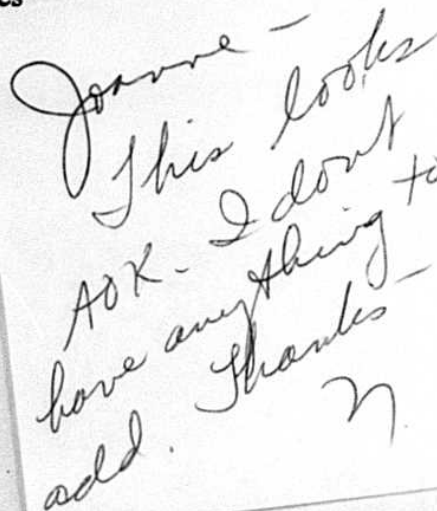 es
Joanne –
This looks
AOK – I don't
have anything to
add. Thanks –
N